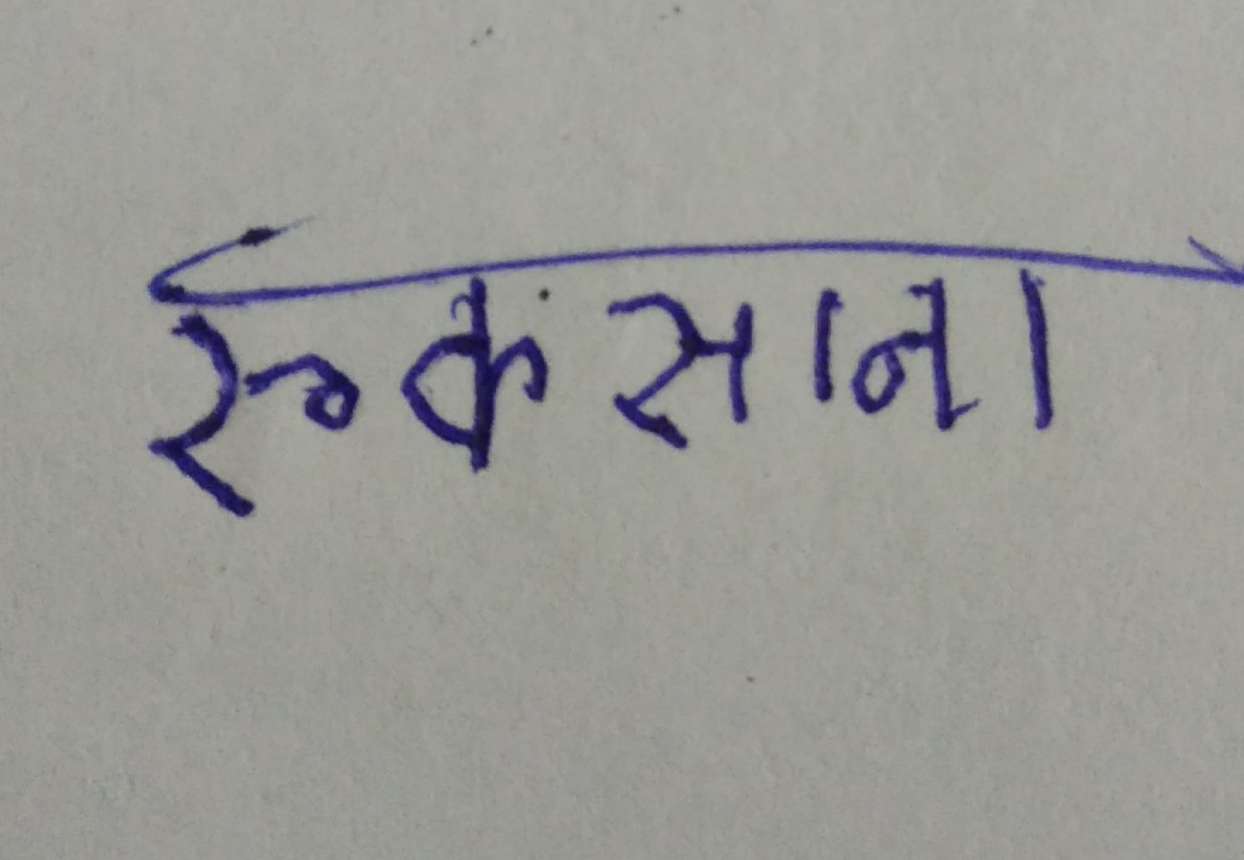 रुकसाना